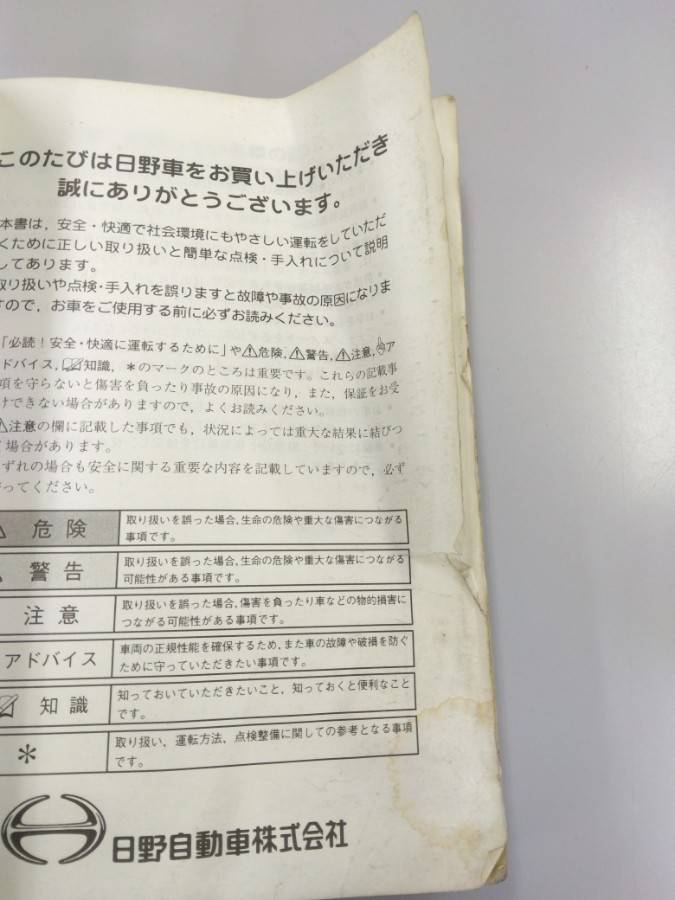 このたびは日野車をお買い上げいただき
誠にありがとうございます。
本書は，安全・快適で社会環境にもやさしい運転をしていただ
くために正しい取り扱いと簡単な点検・手入れについて説明
してあります。
取り扱いや点検・手入れを誤りますと故障や事故の原因になりま
すので，お車をご使用する前に必ずお読みください。
「必読！安全・快適に運転するために」や⚠危険，⚠警告，⚠注意，ア
ドバイス，知識，＊のマークのところは重要です。これらの記載事
項を守らないと傷害を負ったり事故の原因になり，また，保証をお受
けできない場合がありますので，よくお読みください。
⚠注意の欄に記載した事項でも，状況によっては重大な結果に結びつ
く場合があります。
ずれの場合も安全に関する重要な内容を記載していますので，必ず
ってください。
危険 取り扱いを誤った場合，生命の危険や重大な傷害につながる
事項です。
警告 取り扱いを誤った場合，生命の危険や重大な傷害につながる
可能性がある事項です。
注意 取り扱いを誤った場合，傷害を負ったり車などの物的損害に
つながる可能性がある事項です。
アドバイス 車両の正規性能を確保するため，また車の故障や破損を防ぐ
ために守っていただきたい事項です。
知識 知っておいていただきたいこと，知っておくと便利なこと
です。
＊ 取り扱い，運転方法，点検整備に関しての参考となる事項
です。
日野自動車株式会社